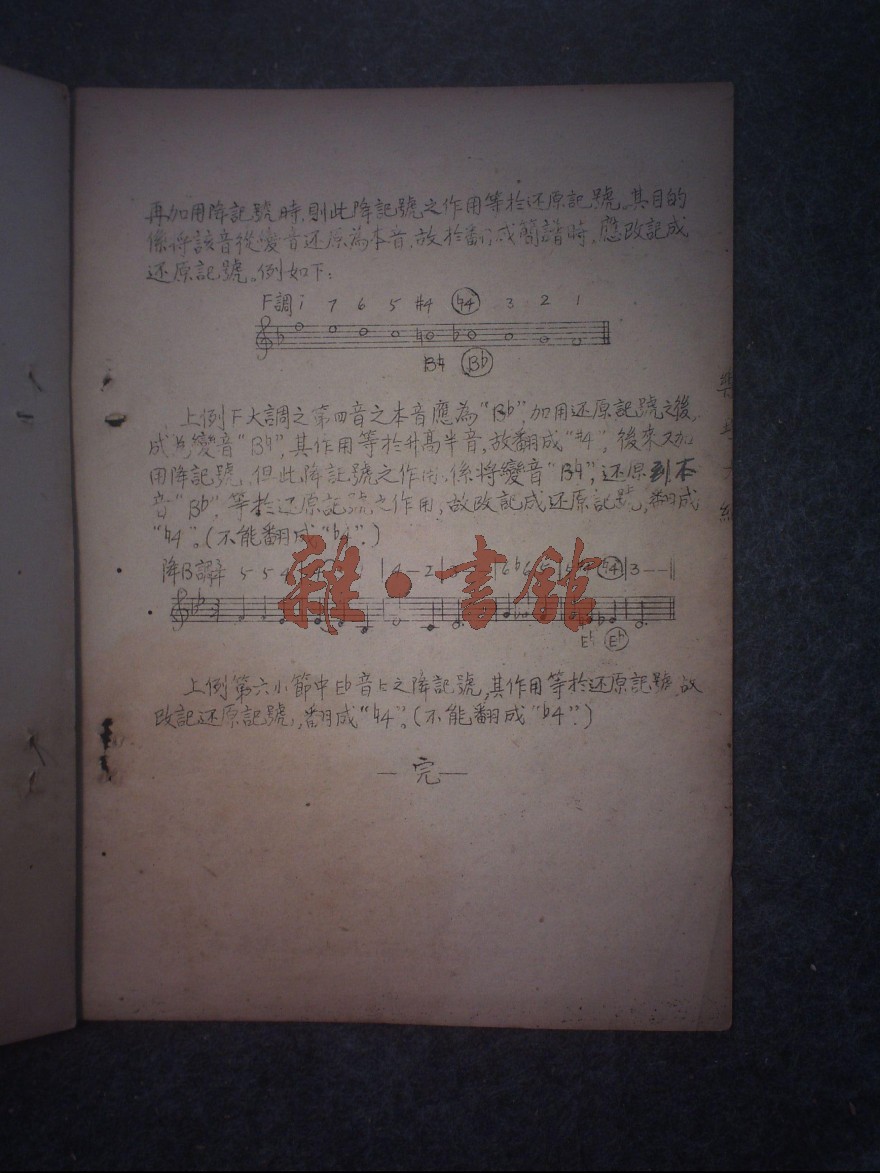 再加用降記號時,則此降記號之作用等於还原記號。其目的
係将該音從變音还原為本音,故於翻成簡譜時,應改記成
还原記號。例如下:
F調 i 7 6 5 #4 ♮4 3 2 1
B♮ B♭
上例F大調之第四音之本音應為“B♭”加用还原記號之後,
成為變音“B♮”,其作用等於升高半音,故翻成“#4”,後來又加
用降記號,但此降記號之作用,係将變音“B♮”,还原到本
音“B♭”,等於还原記號之作用,故改記成还原記號,翻成
“♮4”。(不能翻成“♭4”.)
降B調 5 5 | 4 – 2 | 3 ♮4 | 3 – – ||
雜·書館
E♮ E♭
上例第六小節中E♭音上之降記號,其作用等於还原記號,故
改記还原記號,翻成“♮4”。(不能翻成“♭4”.)
— 完 —